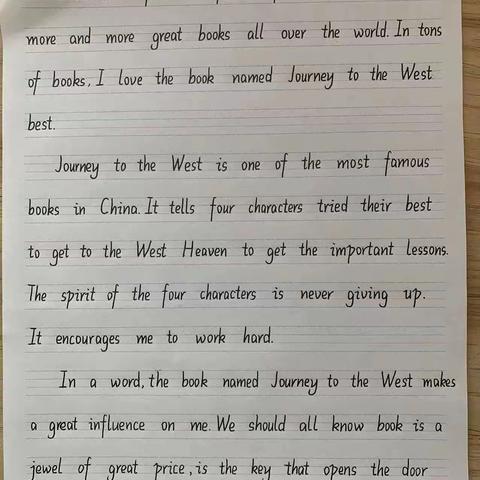 more and more great books all over the world. In tons
of books, I love the book named Journey to the West
best.
Journey to the West is one of the most famous
books in China. It tells four characters tried their best
to get to the West Heaven to get the important lessons.
The spirit of the four characters is never giving up.
It encourages me to work hard.
In a word, the book named Journey to the West makes
a great influence on me. We should all know book is a
jewel of great price, is the key that opens the door